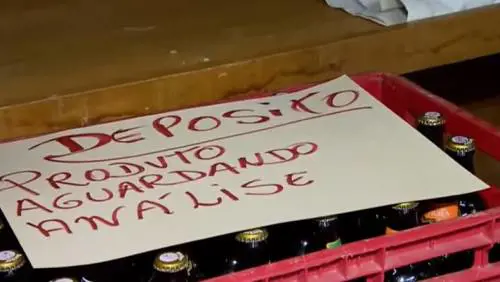 DEPOSITO
PRODUTO
AGUARDANDO
ANÁLISE